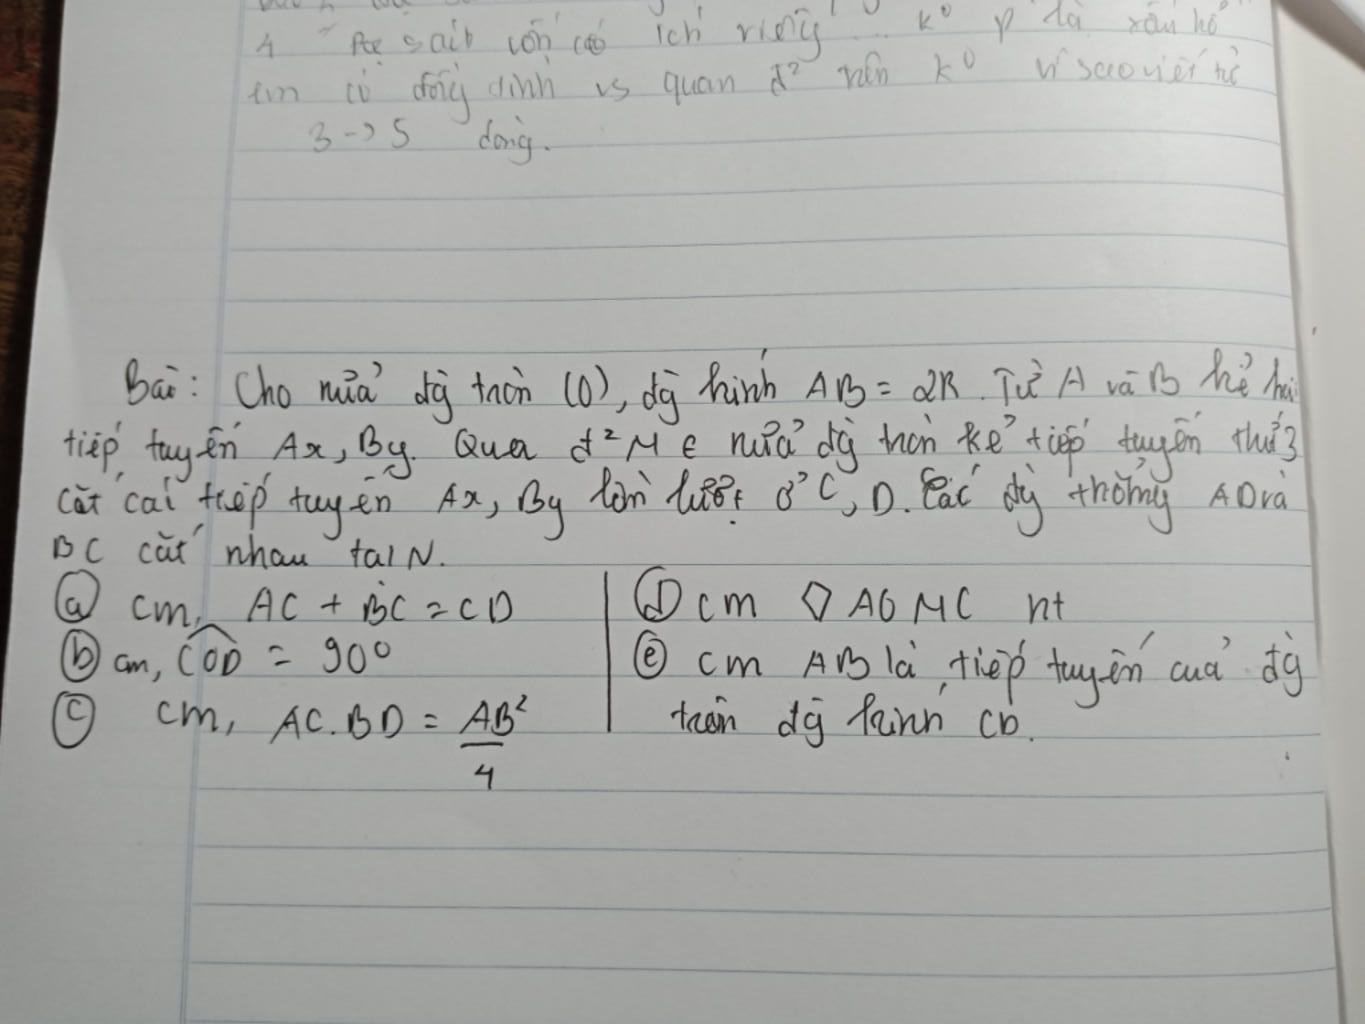 4 sai vốn có ích riêng .. k⁰ p là xấu hổ
em có đồng tình vs quan đ² trên k⁰ vì sao viết từ
3 -> 5 dòng.
Bài: Cho nửa đg tròn (O), đg kính AB = 2R. Từ A và B kẻ hai
tiếp tuyến Ax, By. Qua đ² M ∈ nửa đg tròn kẻ tiếp tuyến thứ 3
cắt các tiếp tuyến Ax, By lần lượt ở C, D. Các đg thẳng AD và
BC cắt nhau tại N.
ⓐ cm, AC + BC = CD
ⓑ cm, \widehat{COD} = 90⁰
ⓒ cm, AC.BD = AB²/4
ⓓ cm ◊ AOMC nt
ⓔ cm AB là tiếp tuyến của đg
tròn đg kính CD.